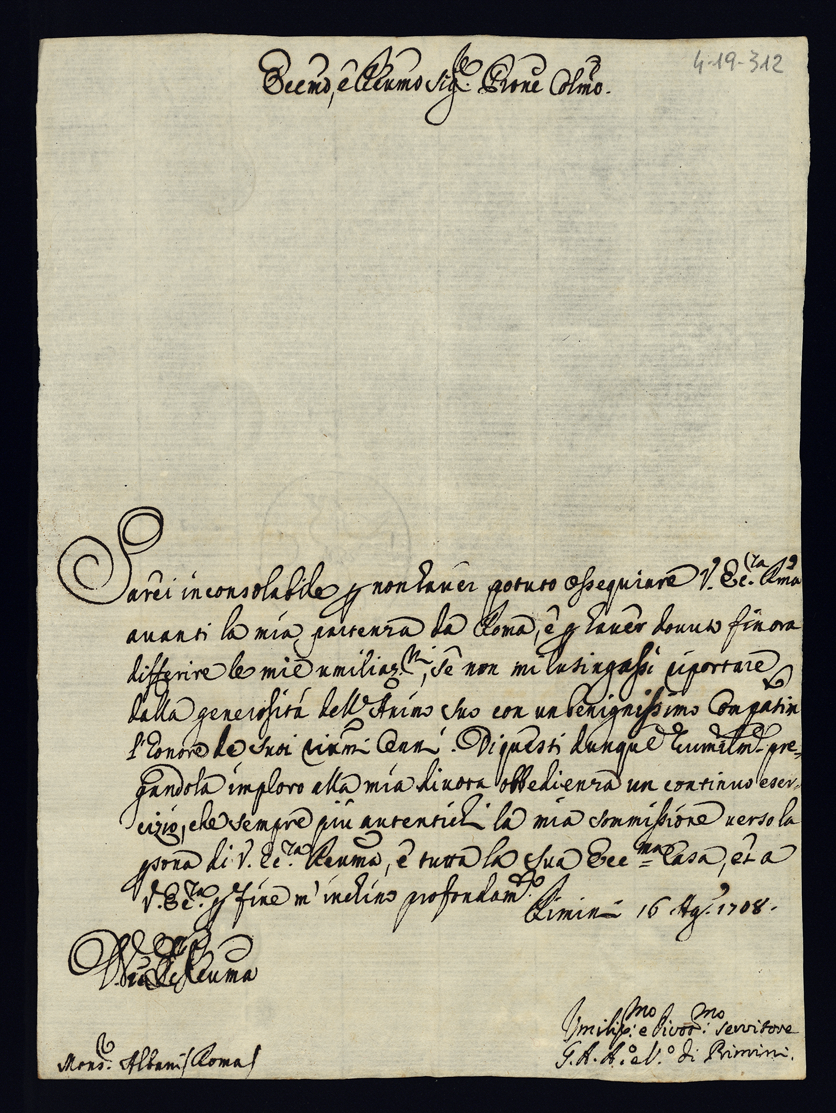 4-19-312
Eccmo, e Reumo Sig.re Prone Colmo.
Sarei inconsolabile p non hauer potuto ossequiare V. Ecc.za Rma
auanti la mia partenza da Roma, e p hauer douuto finora
differire le mie umiliaz.ni, se non mi lusingassi riportare
dalla generosità dell'Animo suo con un benignissimo Compatim
l'honore de suoi Cenni. Di questi dunque humilm.e pre=
gandola imploro alla mia diuota obbedienza un continuo eser=
cizio, che sempre più autentichi la mia sommissione uerso la
psona di V. Ec.za Reuma, e tutta la sua Ecc=ma Casa, et a
V. Ec.za p fine m'inchino profondam.te
Rimini 16 Ag.o 1708.
Reuma
Umiliss.mo e Diuot.mo seruitore
G. A. A.o e V.o di Rimini.
Mons.r Albani (Roma)